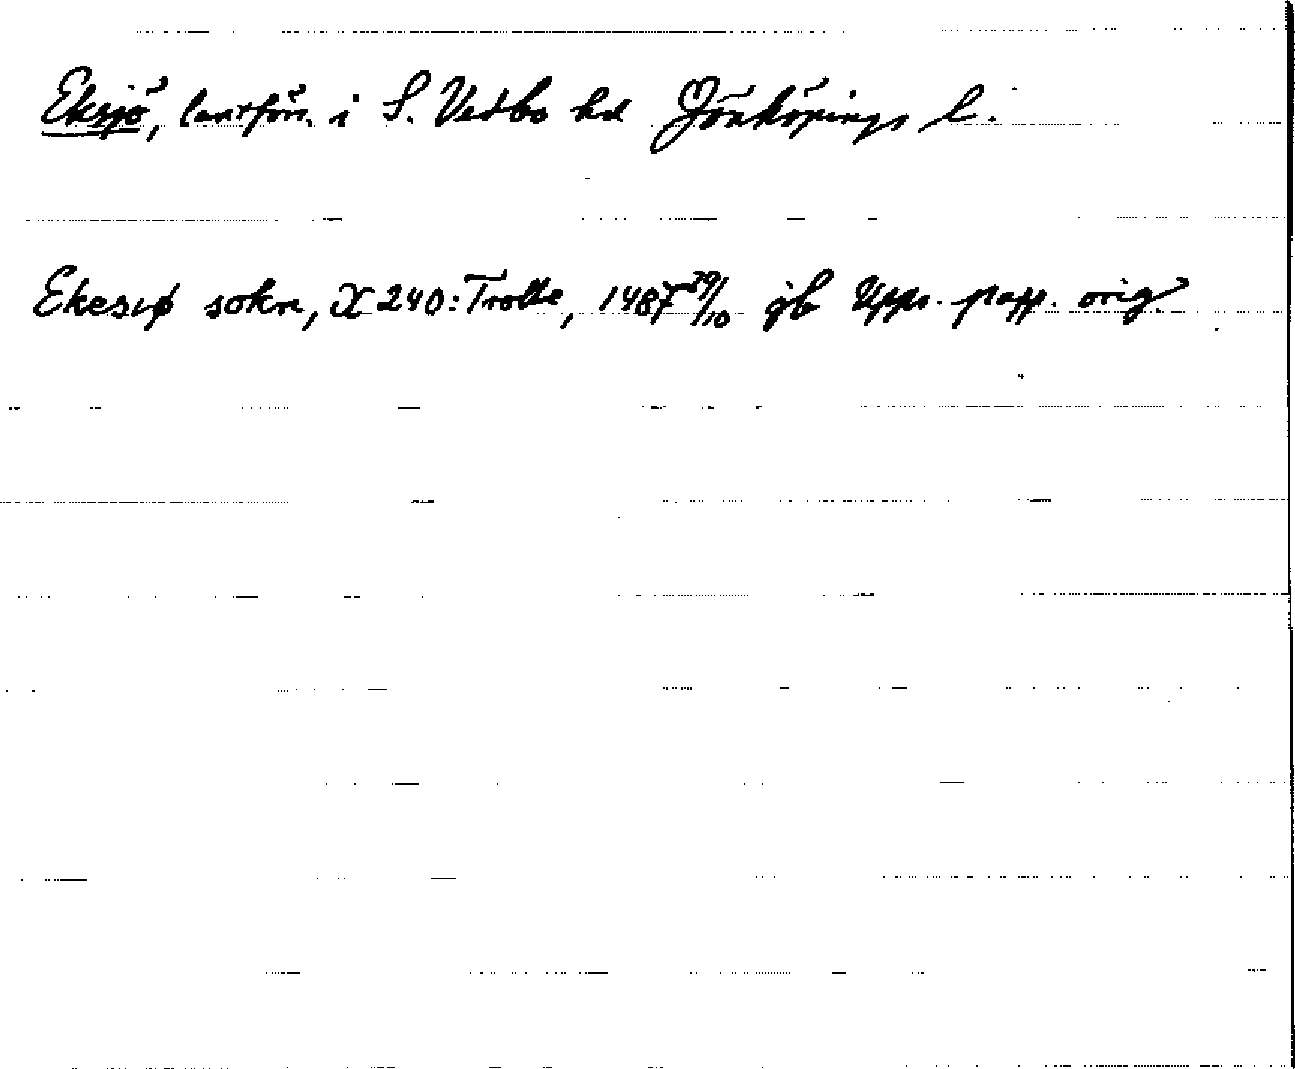 Eksjö, lantförs. i S. Vedbo hd Jönköpings l.
Ekesiø sokn, X 240: Trolle, 1487 29/10 jb Upps. papp. orig.